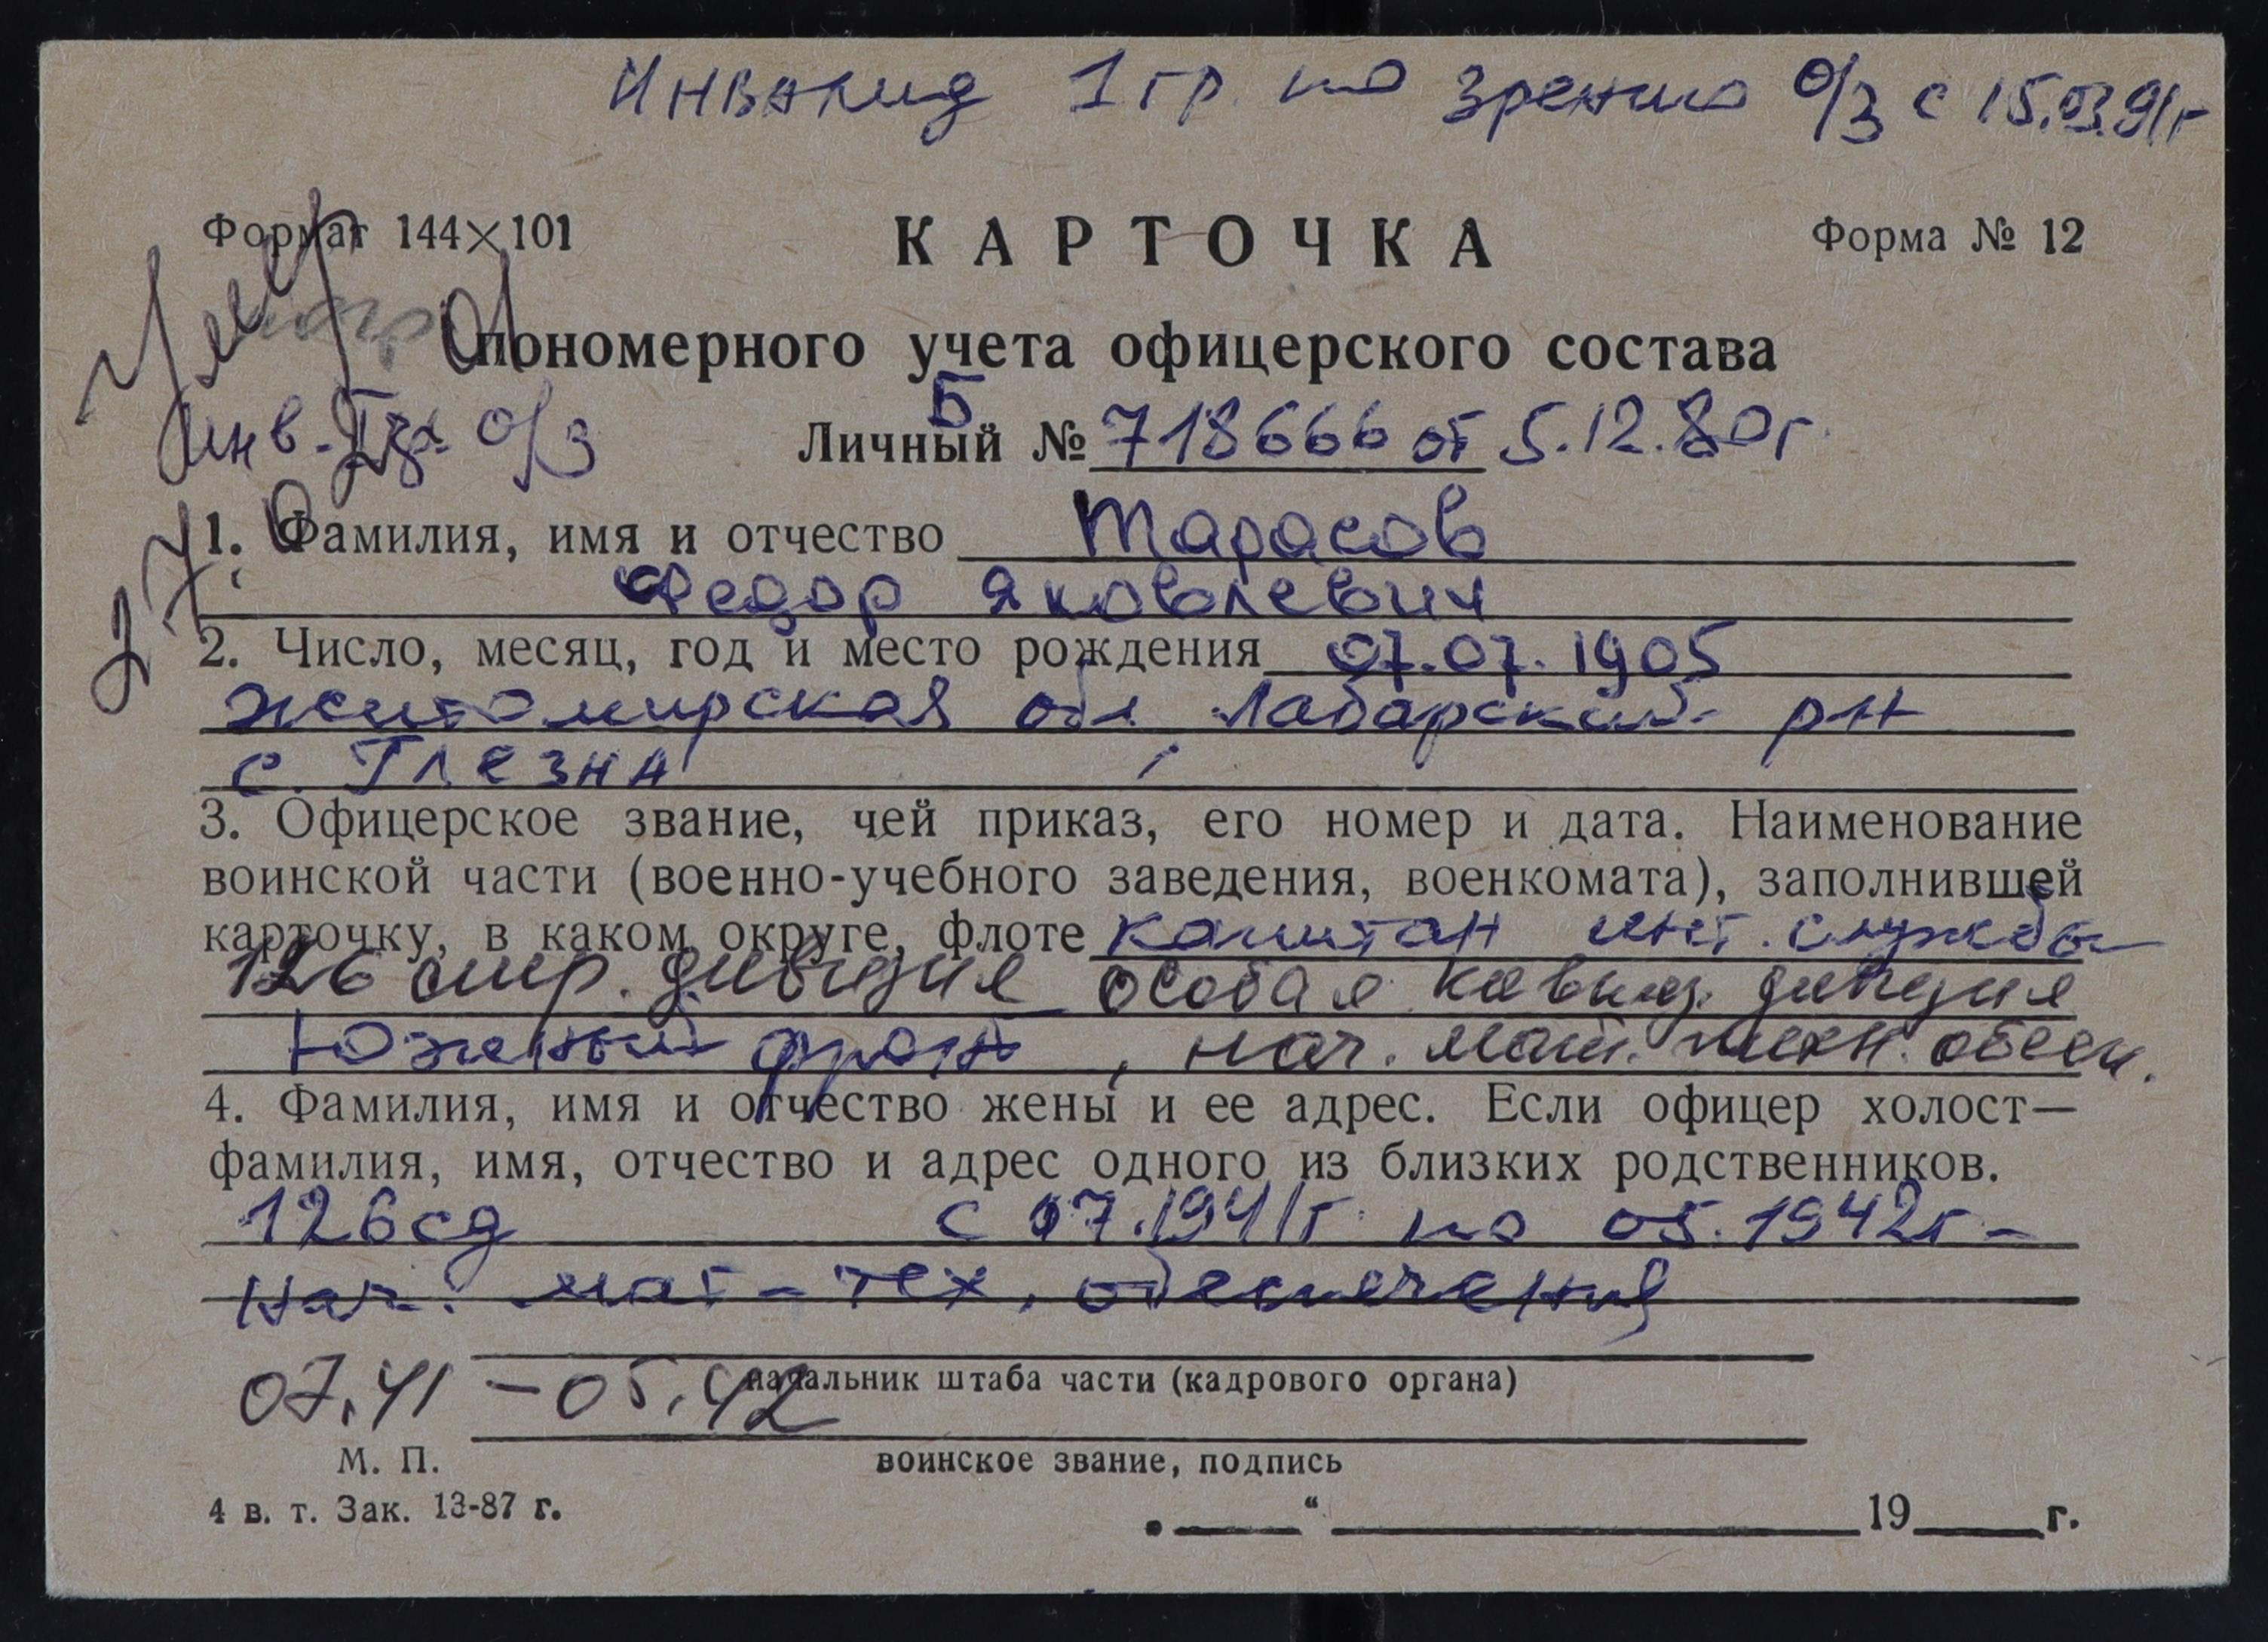 Инвалид 1 гр по зрению о/з с 15.03.91г
Формат 144×101
КАРТОЧКА
Форма № 12
Умер
пономерного учета офицерского состава
инв. о/з
Б
Личный № 718666 от 5.12.80г.
1. Фамилия, имя и отчество Тарасов
Федор Яковлевич
2. Число, месяц, год и место рождения 07.07.1905
Житомирская обл Лабарский р-н
с. Глезна
3. Офицерское звание, чей приказ, его номер и дата. Наименование
воинской части (военно-учебного заведения, военкомата), заполнившей
карточку, в каком округе, флоте капитан инт. службы
126 стр. дивизия особая кавказ. дивизия
Южный фронт, нач. мат. техн. обесп.
4. Фамилия, имя и отчество жены и ее адрес. Если офицер холост—
фамилия, имя, отчество и адрес одного из близких родственников.
126 сд с 07.1941г по 05.1942г-
нач. мат-тех. обеспечения
07.41 - 05.42
начальник штаба части (кадрового органа)
М. П.
воинское звание, подпись
4 в. т. Зак. 13-87 г.
„ “ 19 г.